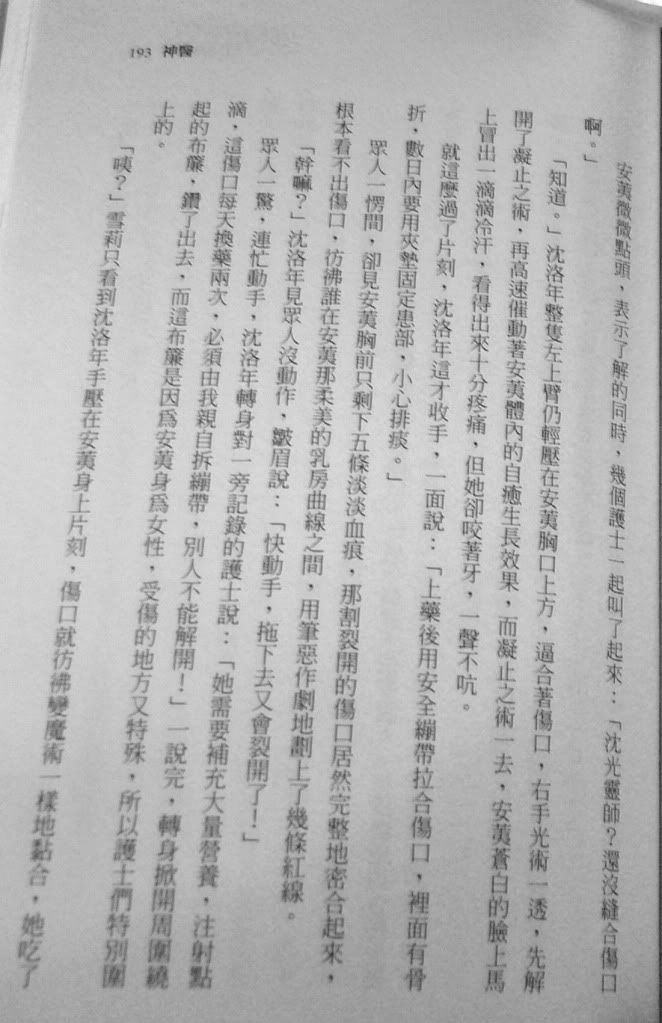 193 神醫
安荑微微點頭，表示了解的同時，幾個護士一起叫了起來：「沈光靈師？還沒縫合傷口
啊。」
「知道。」沈洛年整隻左上臂仍輕壓在安荑胸口上方，逼合著傷口，右手光術一透，先解
開了凝止之術，再高速催動著安荑體內的自癒生長效果，而凝止之術一去，安荑蒼白的臉上馬
上冒出一滴滴冷汗，看得出來十分疼痛，但她卻咬著牙，一聲不吭。
就這麼過了片刻，沈洛年這才收手，一面說：「上藥後用安全繃帶拉合傷口，裡面有骨
折，數日內要用夾墊固定患部，小心排痰。」
眾人一愣間，卻見安荑胸前只剩下五條淡淡血痕，那割裂開的傷口居然完整地密合起來，
根本看不出傷口，彷彿誰在安荑那柔美的乳房曲線之間，用筆惡作劇地劃上了幾條紅線。
「幹嘛？」沈洛年見眾人沒動作，皺眉說：「快動手，拖下去又會裂開了！」
眾人一驚，連忙動手，沈洛年轉身對一旁記錄的護士說：「她需要補充大量營養，注射點
滴，這傷口每天換藥兩次，必須由我親自拆繃帶，別人不能解開！」一說完，轉身掀開周圍繞
起的布簾，鑽了出去，而這布簾是因為安荑身為女性，受傷的地方又特殊，所以護士們特別圍
上的。
「咦？」雪莉只看到沈洛年手壓在安荑身上片刻，傷口就彷彿變魔術一樣地黏合，她吃了